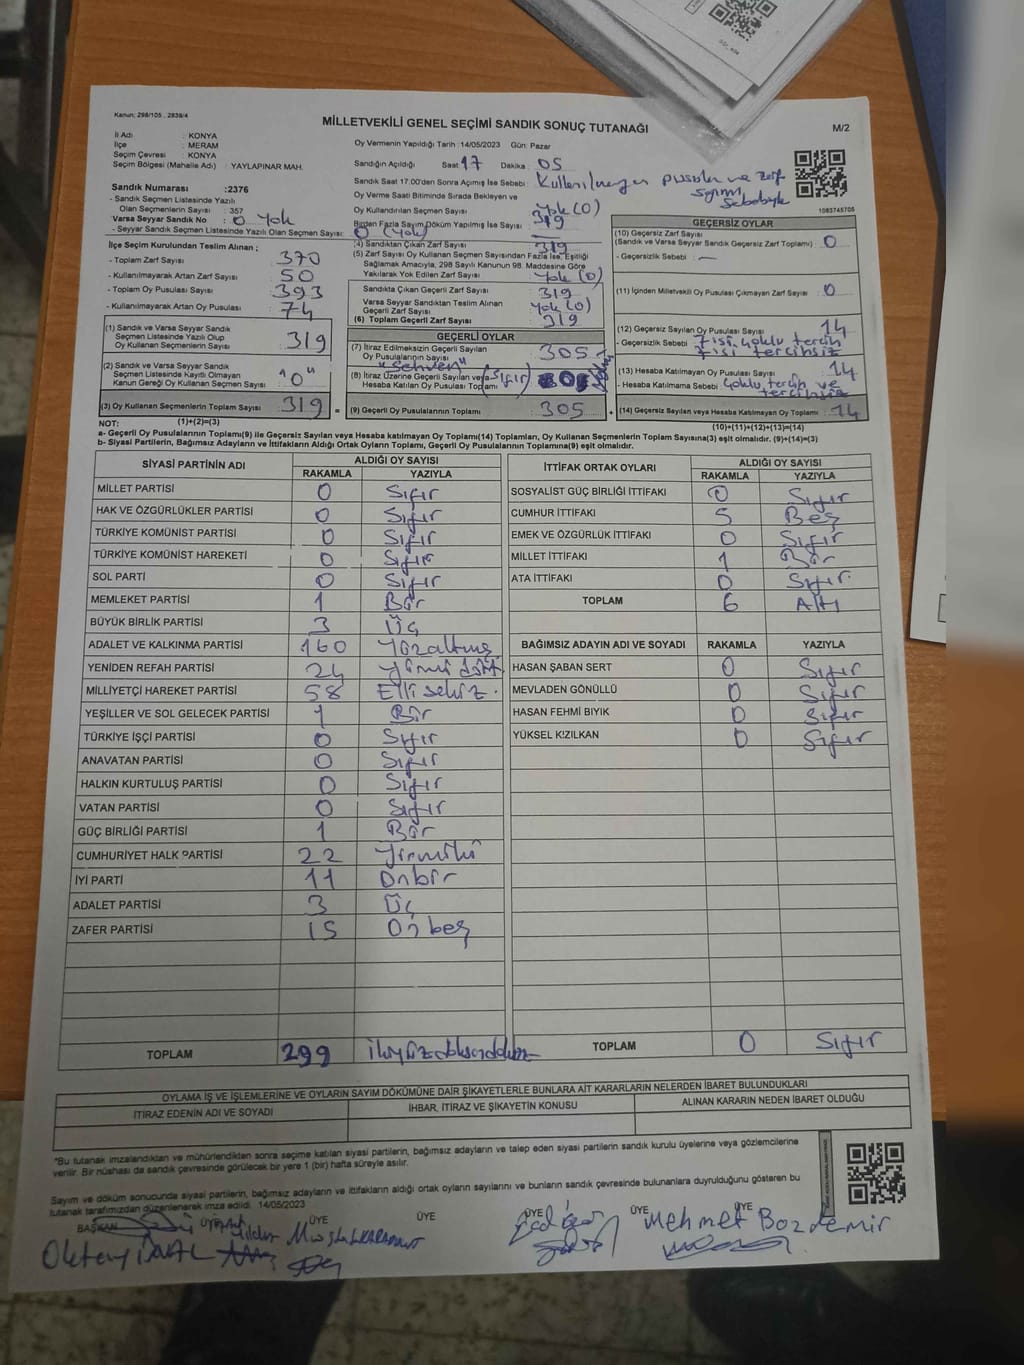 Kanun: 298/105 , 2839/4
MİLLETVEKİLİ GENEL SEÇİMİ SANDIK SONUÇ TUTANAĞI
M/2
İl Adı : KONYA
İlçe : MERAM
Seçim Çevresi : KONYA
Seçim Bölgesi (Mahalle Adı) : YAYLAPINAR MAH.
Sandık Numarası :2376
- Sandık Seçmen Listesinde Yazılı
Olan Seçmenlerin Sayısı : 357
Varsa Seyyar Sandık No : 0 Yok
- Seyyar Sandık Seçmen Listesinde Yazılı Olan Seçmen Sayısı: 0 (Yok)
İlçe Seçim Kurulundan Teslim Alınan ;
- Toplam Zarf Sayısı 370
- Kullanılmayarak Artan Zarf Sayısı 50
- Toplam Oy Pusulası Sayısı 393
- Kullanılmayarak Artan Oy Pusulası 74
(1) Sandık ve Varsa Seyyar Sandık
Seçmen Listesinde Yazılı Olup
Oy Kullanan Seçmenlerin Sayısı 319
(2) Sandık ve Varsa Seyyar Sandık
Seçmen Listesinde Kayıtlı Olmayan
Kanun Gereği Oy Kullanan Seçmen Sayısı "0"
(3) Oy Kullanan Seçmenlerin Toplam Sayısı 319 =
(1)+(2)=(3)
Oy Vermenin Yapıldığı Tarih : 14/05/2023 Gün: Pazar
Sandığın Açıldığı Saat 17 Dakika : 05
Sandık Saat 17.00'den Sonra Açılmış İse Sebebi : Kullanılmayan pusula ve zarf
sayımı
Sebebiyle
Oy Verme Saati Bitiminde Sırada Bekleyen ve
Oy Kullandırılan Seçmen Sayısı Yok (0)
Birden Fazla Sayım Döküm Yapılmış İse Sayısı 319
(4) Sandıktan Çıkan Zarf Sayısı 319
(5) Zarf Sayısı Oy Kullanan Seçmen Sayısından Fazla İse, Eşitliği
Sağlamak Amacıyla, 298 Sayılı Kanunun 98. Maddesine Göre
Yakılarak Yok Edilen Zarf Sayısı Yok (0)
Sandıkta Çıkan Geçerli Zarf Sayısı 319
Varsa Seyyar Sandıktan Teslim Alınan
Geçerli Zarf Sayısı Yok (0)
(6) Toplam Geçerli Zarf Sayısı 319
GEÇERLİ OYLAR
(7) İtiraz Edilmeksizin Geçerli Sayılan
Oy Pusulalarının Sayısı 305
"Sehven"
(8) İtiraz Üzerine Geçerli Sayılan veya (Sıfır)
Hesaba Katılan Oy Pusulası Toplamı
(9) Geçerli Oy Pusulalarının Toplamı 305 +
1085745705
GEÇERSİZ OYLAR
(10) Geçersiz Zarf Sayısı
(Sandık ve Varsa Seyyar Sandık Geçersiz Zarf Toplamı) 0
- Geçersizlik Sebebi : —
(11) İçinden Milletvekili Oy Pusulası Çıkmayan Zarf Sayısı 0
(12) Geçersiz Sayılan Oy Pusulası Sayısı 14
- Geçersizlik Sebebi 7'isi çoklu tercih
7'isi tercihsiz
(13) Hesaba Katılmayan Oy Pusulası Sayısı 14
- Hesaba Katılmama Sebebi Çoklu tercih ve
tercihsiz
(14) Geçersiz Sayılan veya Hesaba Katılmayan Oy Toplamı 14
(10)+(11)+(12)+(13)=(14)
NOT:
a- Geçerli Oy Pusulalarının Toplamı(9) ile Geçersiz Sayılan veya Hesaba katılmayan Oy Toplamı(14) Toplamları, Oy Kullanan Seçmenlerin Toplam Sayısına(3) eşit olmalıdır. (9)+(14)=(3)
b- Siyasi Partilerin, Bağımsız Adayların ve İttifakların Aldığı Ortak Oyların Toplamı, Geçerli Oy Pusulalarının Toplamına(9) eşit olmalıdır.
SİYASİ PARTİNİN ADI
ALDIĞI OY SAYISI
RAKAMLA YAZIYLA
MİLLET PARTİSİ 0 Sıfır
HAK VE ÖZGÜRLÜKLER PARTİSİ 0 Sıfır
TÜRKİYE KOMÜNİST PARTİSİ 0 Sıfır
TÜRKİYE KOMÜNİST HAREKETİ 0 Sıfır
SOL PARTİ 0 Sıfır
MEMLEKET PARTİSİ 1 Bir
BÜYÜK BİRLİK PARTİSİ 3 Üç
ADALET VE KALKINMA PARTİSİ 160 Yüzaltmış
YENİDEN REFAH PARTİSİ 24 Yirmi dört
MİLLİYETÇİ HAREKET PARTİSİ 58 Elli sekiz.
YEŞİLLER VE SOL GELECEK PARTİSİ 1 Bir
TÜRKİYE İŞÇİ PARTİSİ 0 Sıfır
ANAVATAN PARTİSİ 0 Sıfır
HALKIN KURTULUŞ PARTİSİ 0 Sıfır
VATAN PARTİSİ 0 Sıfır
GÜÇ BİRLİĞİ PARTİSİ 1 Bir
CUMHURİYET HALK PARTİSİ 22 Yirmiiki
İYİ PARTİ 11 Onbir
ADALET PARTİSİ 3 Üç
ZAFER PARTİSİ 15 On beş
TOPLAM 299 ikiyüzdoksandokuz
İTTİFAK ORTAK OYLARI
ALDIĞI OY SAYISI
RAKAMLA YAZIYLA
SOSYALİST GÜÇ BİRLİĞİ İTTİFAKI 0 Sıfır
CUMHUR İTTİFAKI 5 Beş
EMEK VE ÖZGÜRLÜK İTTİFAKI 0 Sıfır
MİLLET İTTİFAKI 1 Bir
ATA İTTİFAKI 0 Sıfır
TOPLAM 6 Altı
BAĞIMSIZ ADAYIN ADI VE SOYADI RAKAMLA YAZIYLA
HASAN ŞABAN SERT 0 Sıfır
MEVLADEN GÖNÜLLÜ 0 Sıfır
HASAN FEHMİ BIYIK 0 Sıfır
YÜKSEL KIZILKAN 0 Sıfır
TOPLAM 0 Sıfır
OYLAMA İŞ VE İŞLEMLERİNE VE OYLARIN SAYIM DÖKÜMÜNE DAİR ŞİKAYETLERLE BUNLARA AİT KARARLARIN NELERDEN İBARET BULUNDUKLARI
İTİRAZ EDENİN ADI VE SOYADI İHBAR, İTİRAZ VE ŞİKAYETİN KONUSU ALINAN KARARIN NEDEN İBARET OLDUĞU
"Bu tutanak imzalandıktan ve mühürlendikten sonra seçime katılan siyasi partilerin, bağımsız adayların ve talep eden siyasi partilerin sandık kurulu üyelerine veya gözlemcilerine
verilir. Bir nüshası da sandık çevresinde görülecek bir yere 1 (bir) hafta süreyle asılır.
Sayım ve döküm sonucunda siyasi partilerin, bağımsız adayların ve ittifakların aldığı ortak oyların sayılarını ve bunların sandık çevresinde bulunanlara duyrulduğunu gösteren bu
tutanak tarafımızdan düzenlenerek imza edildi. 14/05/2023
BAŞKAN ÜYE ÜYE ÜYE ÜYE ÜYE ÜYE
Mehmet Bozdemir